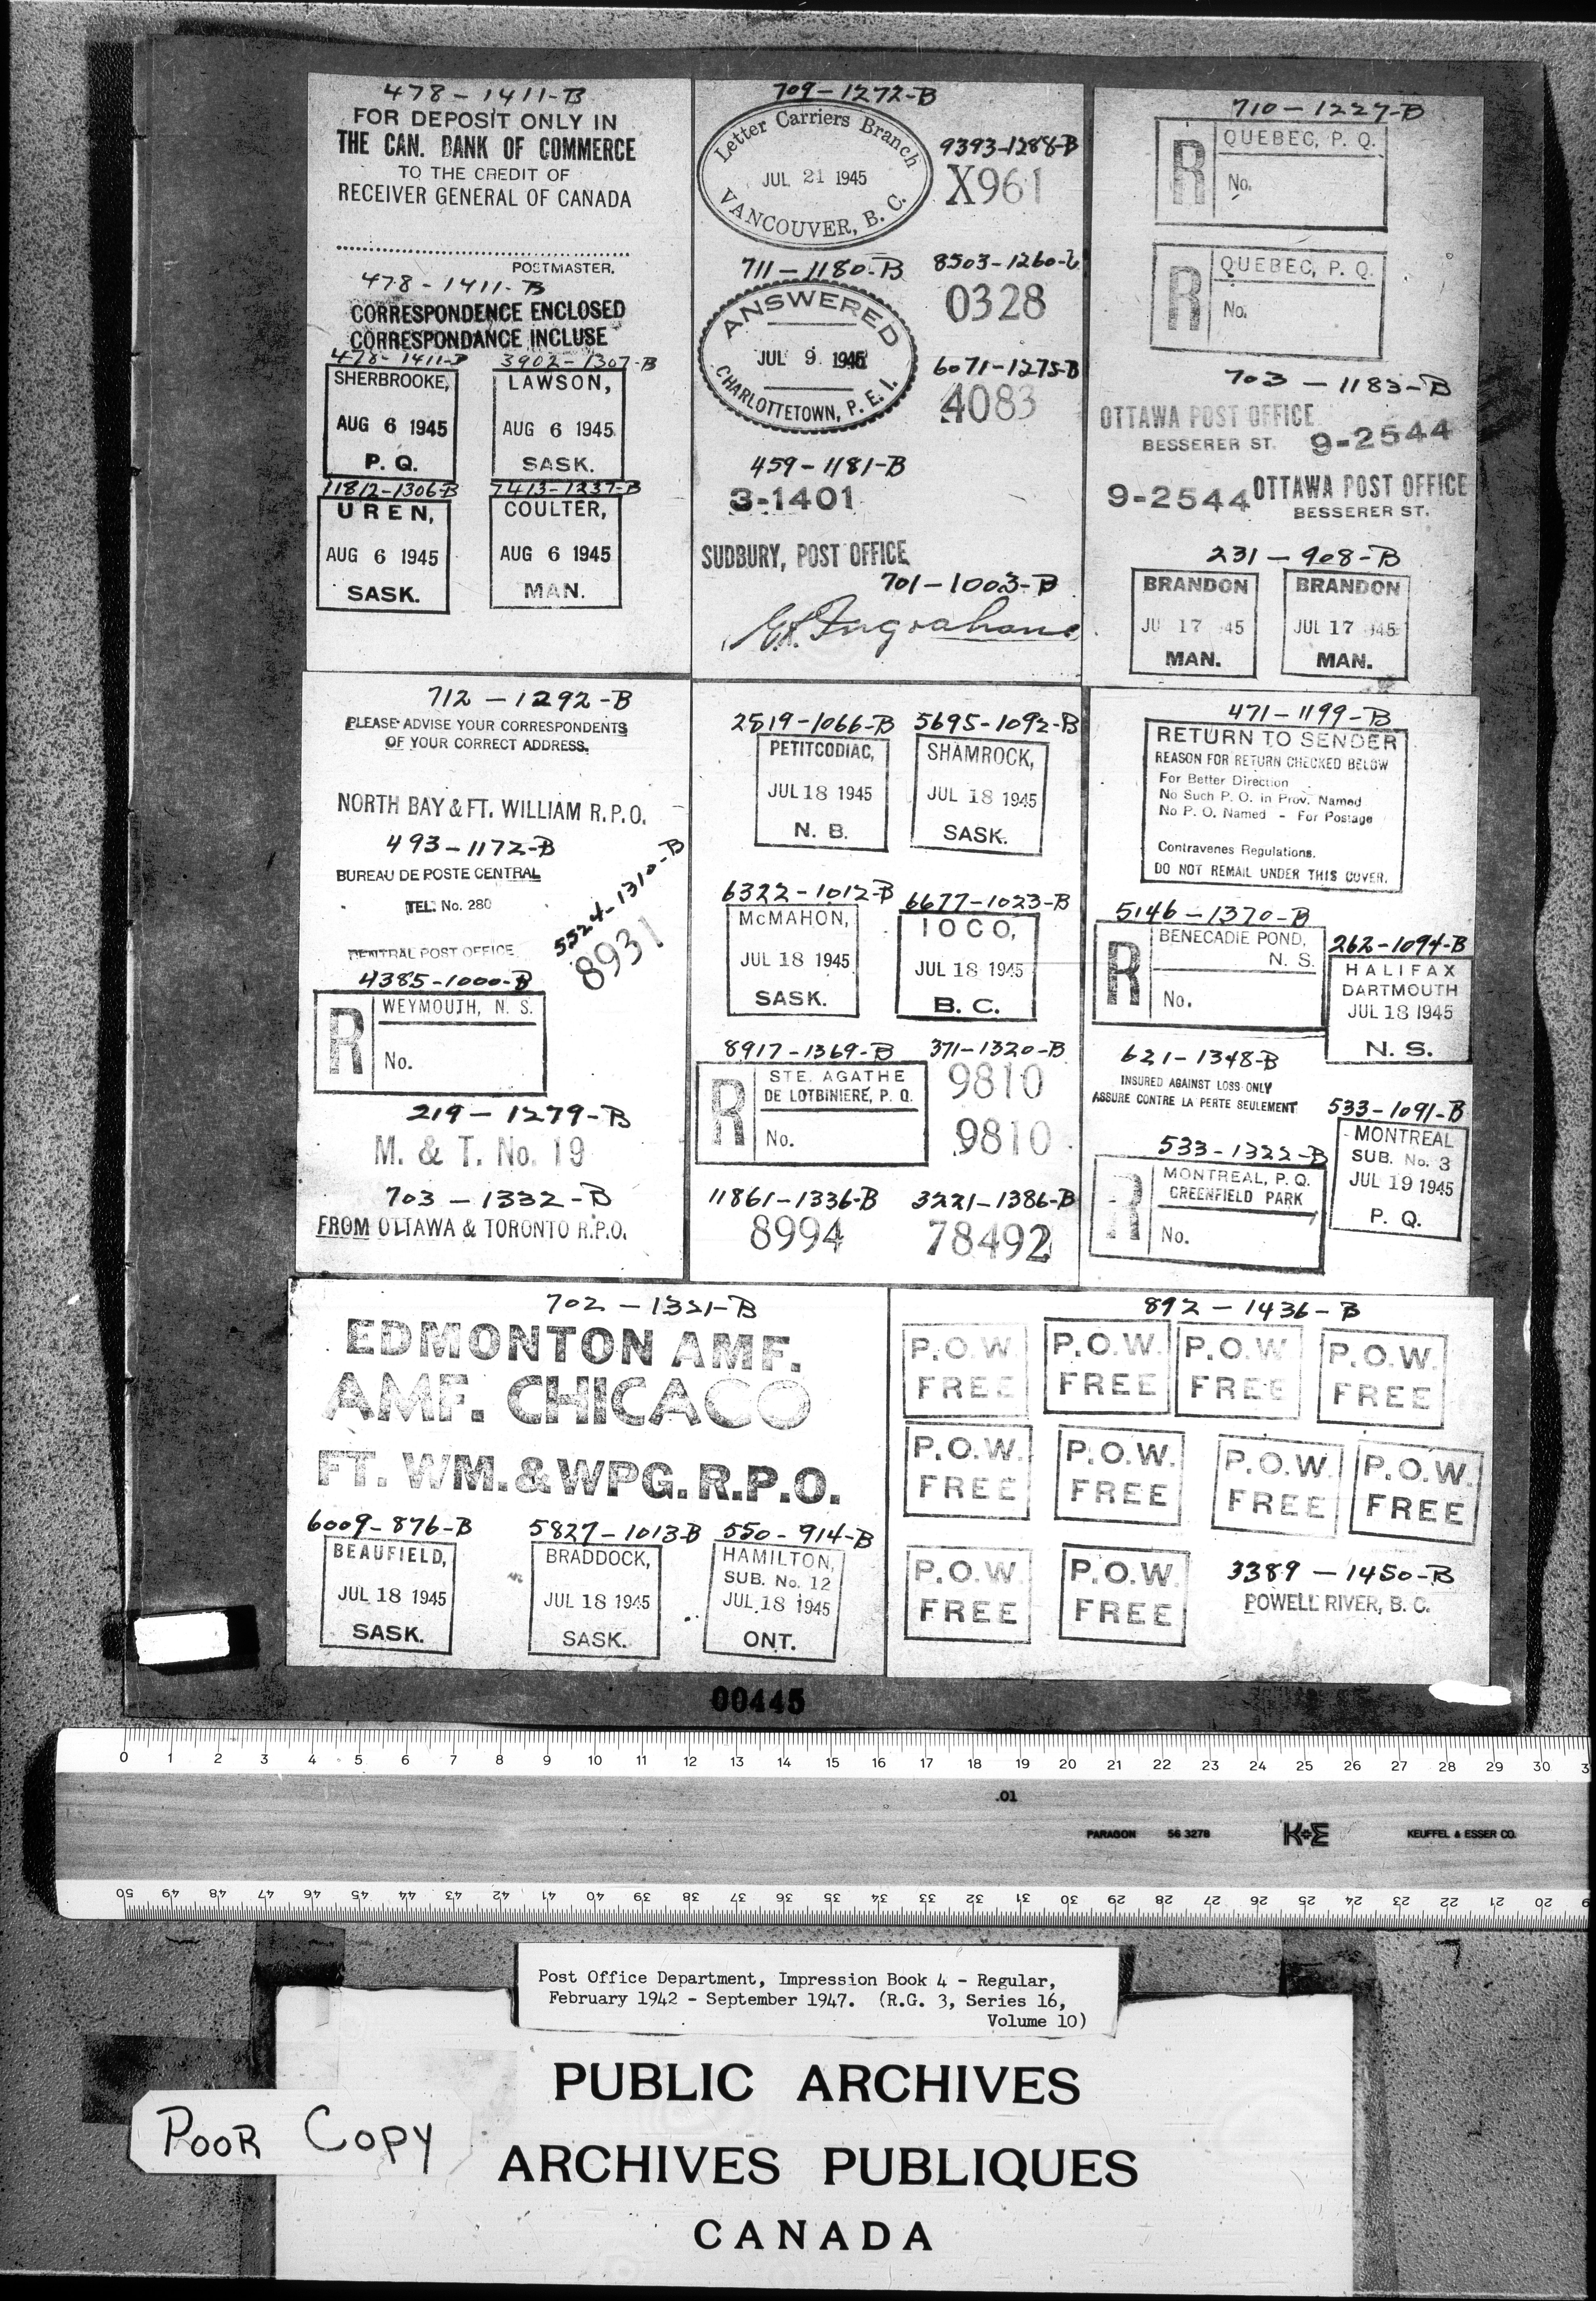 478-1411-B
FOR DEPOSIT ONLY IN
THE CAN. BANK OF COMMERCE
TO THE CREDIT OF
RECEIVER GENERAL OF CANADA
POSTMASTER.
478-1411-B
CORRESPONDENCE ENCLOSED
CORRESPONDANCE INCLUSE
478-1411-B
SHERBROOKE,
AUG 6 1945
P. Q.
3902-1307-B
LAWSON,
AUG 6 1945
SASK.
11812-1306-B
UREN,
AUG 6 1945
SASK.
7413-1237-B
COULTER,
AUG 6 1945
MAN.
709-1272-B
Letter Carriers Branch
JUL 21 1945
VANCOUVER, B. C.
9393-1288-B
X961
711-1180-B
ANSWERED
JUL 9 1945
CHARLOTTETOWN, P. E. I.
8503-1260-B
0328
6071-1275-B
4083
459-1181-B
3-1401
SUDBURY, POST OFFICE
701-1003-B
710-1227-B
R
QUEBEC, P. Q.
No.
R
QUEBEC, P. Q.
No.
703-1183-B
OTTAWA POST OFFICE
BESSERER ST. 9-2544
9-2544 OTTAWA POST OFFICE
BESSERER ST.
231-908-B
BRANDON
JU 17 45
MAN.
BRANDON
JUL 17 945
MAN.
712-1292-B
PLEASE ADVISE YOUR CORRESPONDENTS
OF YOUR CORRECT ADDRESS.
NORTH BAY & FT. WILLIAM R.P.O.
493-1172-B
BUREAU DE POSTE CENTRAL
TEL. No. 280
CENTRAL POST OFFICE
5524-1310-B
8931
4385-1000-B
R
WEYMOUTH, N. S.
No.
219-1279-B
M. & T. No. 19
703-1332-B
FROM OTTAWA & TORONTO R.P.O.
2519-1066-B
PETITCODIAC,
JUL 18 1945
N. B.
5695-1092-B
SHAMROCK,
JUL 18 1945
SASK.
6322-1012-B
McMAHON,
JUL 18 1945
SASK.
6677-1023-B
IOCO,
JUL 18 1945
B. C.
8917-1369-B
R
STE. AGATHE
DE LOTBINIERE, P. Q.
No.
371-1320-B
9810
9810
11861-1336-B
8994
3221-1386-B
78492
471-1199-B
RETURN TO SENDER
REASON FOR RETURN CHECKED BELOW
For Better Direction
No Such P. O. in Prov. Named
No P. O. Named - For Postage
Contravenes Regulations.
DO NOT REMAIL UNDER THIS COVER.
5146-1370-B
R
BENECADIE POND,
N. S.
No.
262-1094-B
HALIFAX
DARTMOUTH
JUL 18 1945
N. S.
621-1348-B
INSURED AGAINST LOSS ONLY
ASSURE CONTRE LA PERTE SEULEMENT
533-1322-B
R
MONTREAL, P. Q.
GREENFIELD PARK
No.
533-1091-B
MONTREAL
SUB. No. 3
JUL 19 1945
P. Q.
702-1321-B
EDMONTON AMF.
AMF. CHICAGO
FT. WM. & WPG. R.P.O.
6009-876-B
BEAUFIELD,
JUL 18 1945
SASK.
5827-1013-B
BRADDOCK,
JUL 18 1945
SASK.
550-914-B
HAMILTON,
SUB. No. 12
JUL 18 1945
ONT.
892-1436-B
P.O.W.
FREE
P.O.W.
FREE
P.O.W.
FREE
P.O.W.
FREE
P.O.W.
FREE
P.O.W.
FREE
P.O.W.
FREE
P.O.W.
FREE
P.O.W.
FREE
P.O.W.
FREE
3389-1450-B
POWELL RIVER, B. C.
00445
0 1 2 3 4 5 6 7 8 9 10 11 12 13 14 15 16 17 18 19 20 21 22 23 24 25 26 27 28 29 30 3
.01
PARAGON 56 3278 K+E KEUFFEL & ESSER CO.
50 49 48 47 46 45 44 43 42 41 40 39 38 37 36 35 34 33 32 31 30 29 28 27 26 25 24 23 22 21 20
Post Office Department, Impression Book 4 - Regular,
February 1942 - September 1947. (R.G. 3, Series 16,
Volume 10)
PUBLIC ARCHIVES
ARCHIVES PUBLIQUES
CANADA
POOR COPY